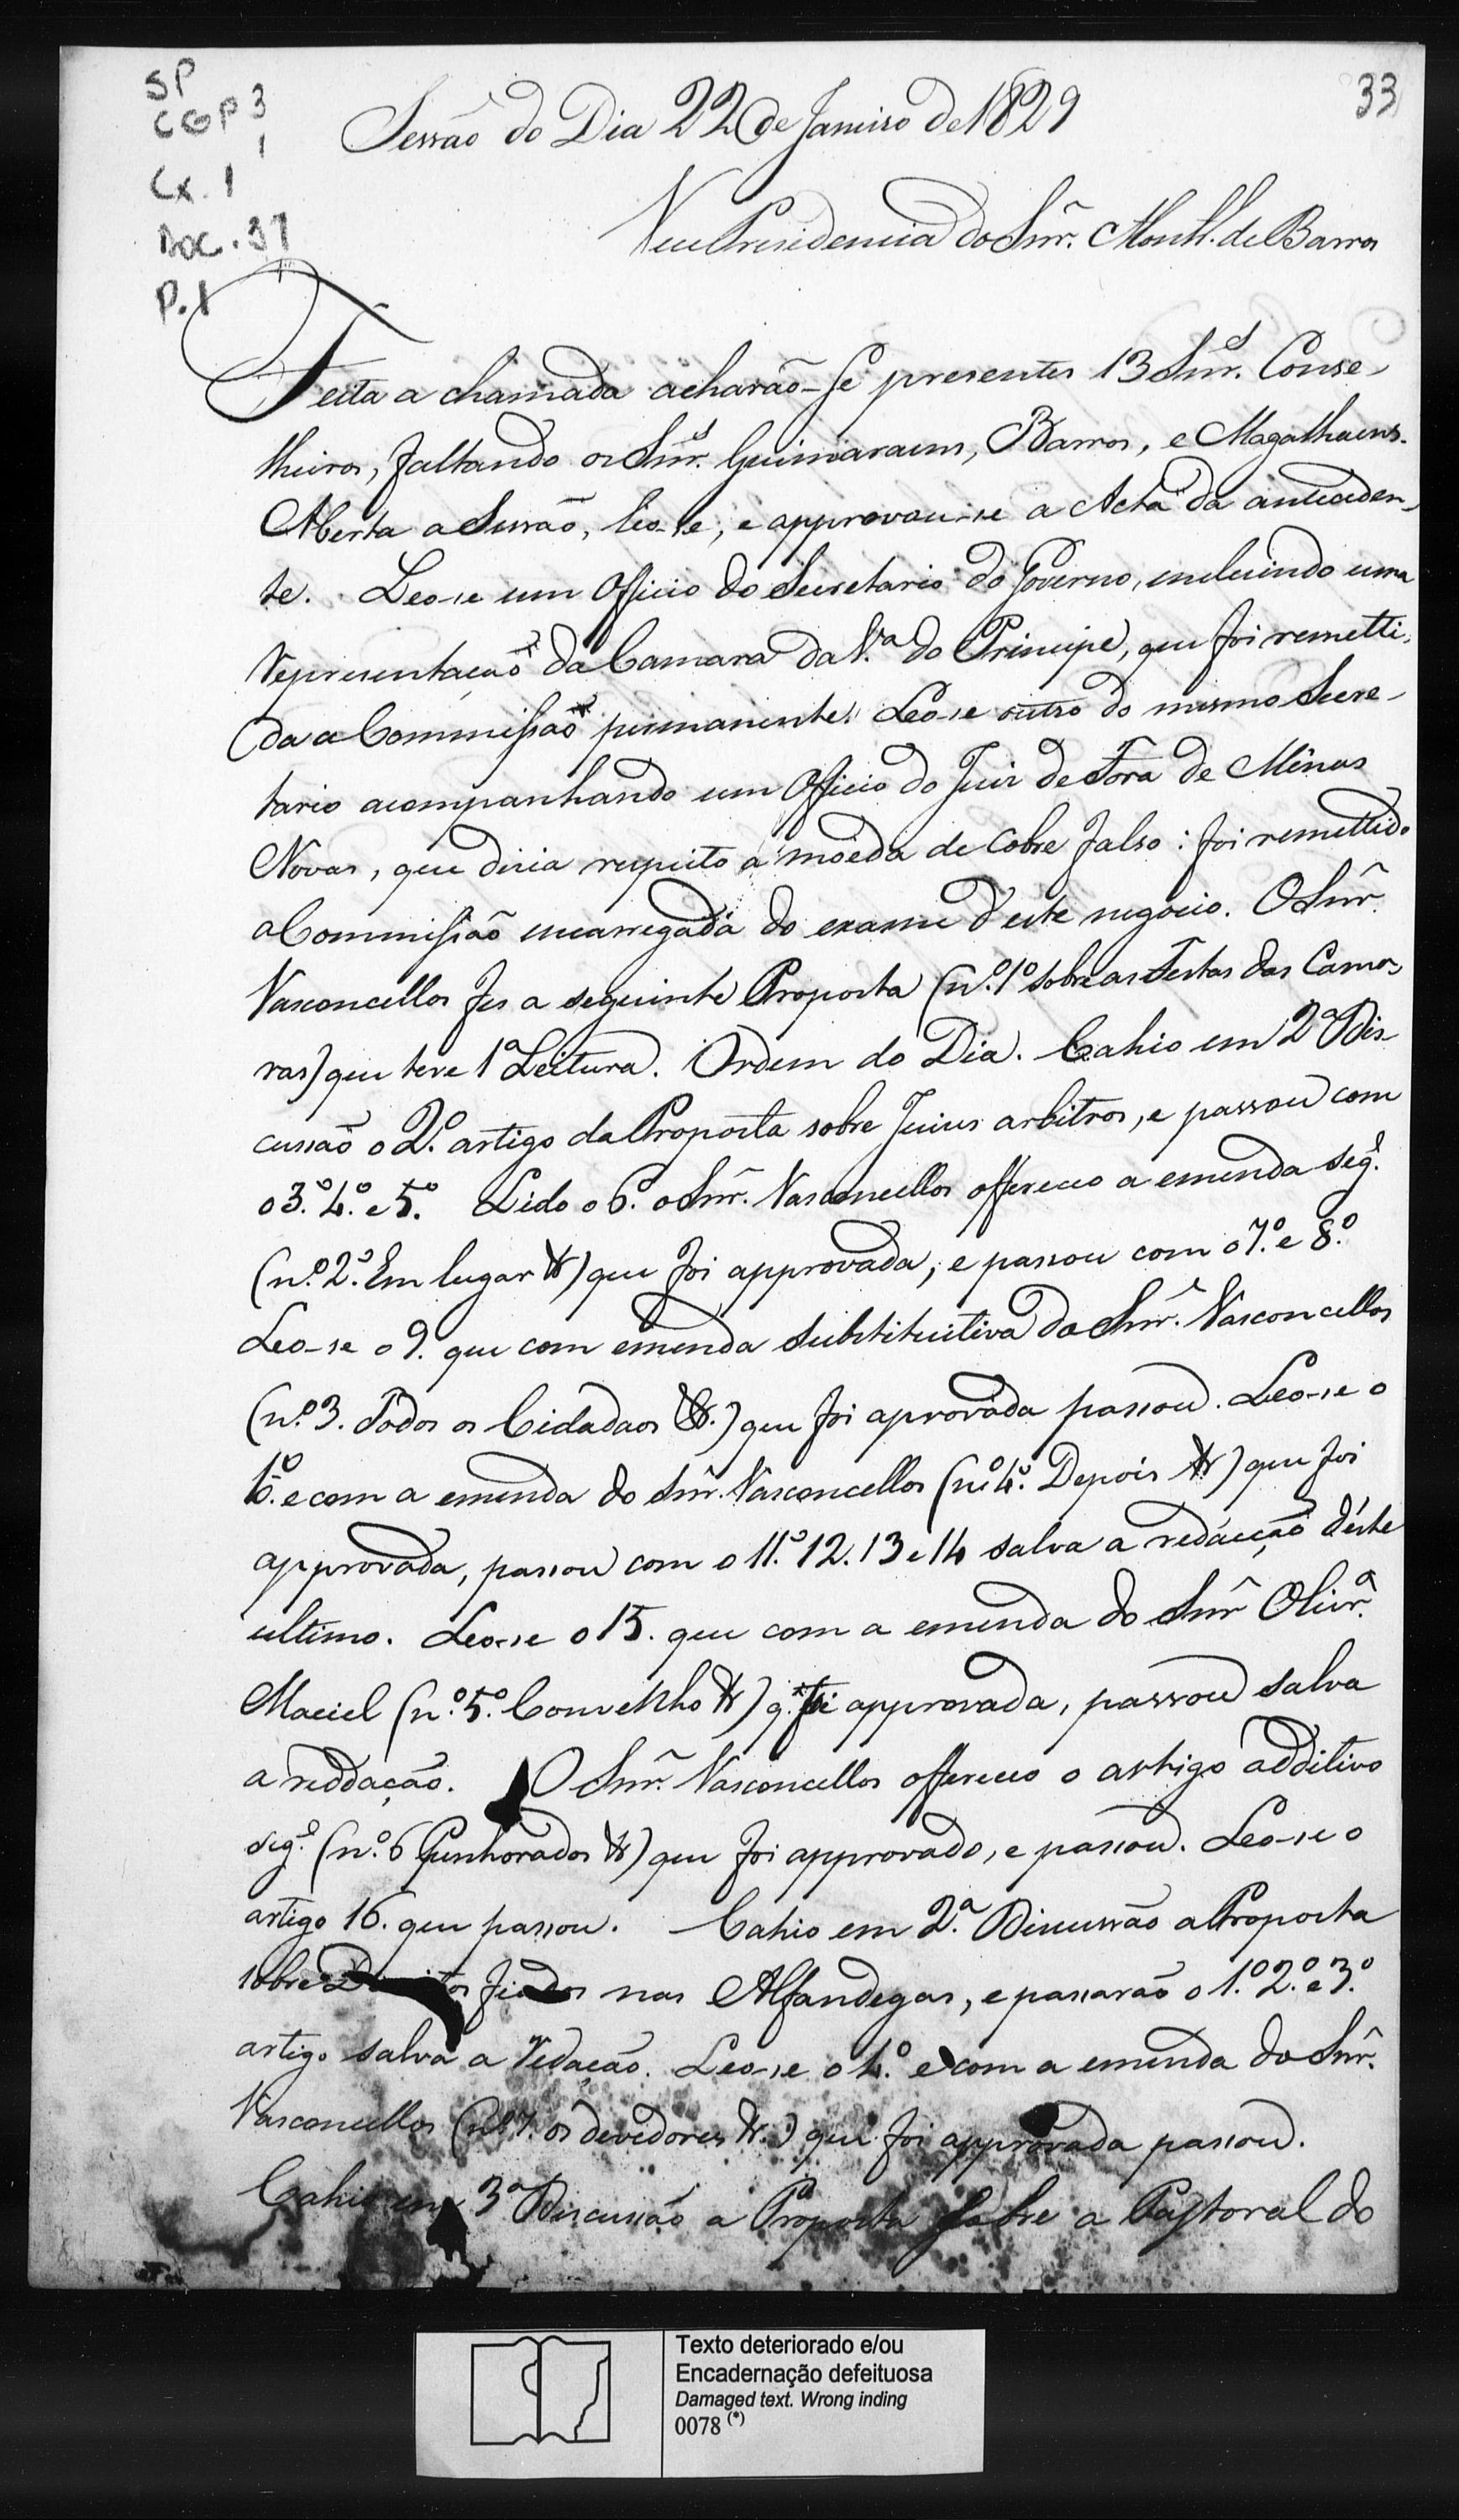 SP
CGP 3
1
Cx. 1
Doc. 37
P. 1
33
Sessão do Dia 22 de Janeiro de 1829
Vice Presidencia do Snr. Mont. de Barros
Feita a chamada acharão-se presentes 13 Snr.s Conse-
lheiros, faltando os Snr.s Guimaraens, Barros, e Magalhaens.
Aberta a Sessão, leo-se, e approvou-se a Acta da anteceden-
te. Leo-se um Officio do Secretario do Governo, incluindo uma
representação da Camara da V.a do Principe, que foi remetti-
da a Commissão permanente. Leo-se outro do mesmo Secre-
tario acompanhando um Officio do Juiz de Fora de Minas
Novas, que dizia respeito a moeda de Cobre falso: foi remettido
a Commissão encarregada do exame d'este negocio. O Snr.
Vasconcellos fes a seguinte Proposta (n.º 1º sobre as Festas das Cama-
ras) que teve 1ª Leitura. Ordem do Dia. Cahio em 2ª Dis-
cussão o 2.º artigo da Proposta sobre Juizes arbitros, e passou com
o 3.º 4.º e 5.º Lido o 6.º o Snr. Vasconcellos offereceo a emenda seg.e
(n.º 2.º Em lugar &) que foi approvada, e passou com o 7.º e 8.º
Leo-se o 9. que com emenda substituitiva do Snr. Vasconcellos
(n.º 3. Todos os Cidadaos &.) que foi aprovada passou. Leo-se o
10.º e com a emenda do Snr. Vasconcellos (n.º 4.º Depois &) que foi
approvada, passou com o 11.º 12. 13 e 14 salva a redacção d'este
ultimo. Leo-se o 15. que com a emenda do Snr Olivr.a
Maciel (n.º 5.º Conselho &) q. foi approvada, passou salva
a reddação. O Snr. Vasconcellos offereceo o artigo additivo
seg.e (n.º 6 Penhorados &) que foi approvado, e passou. Leo-se o
artigo 16. que passou. Cahio em 2.ª Discussão a Proposta
sobre fiados nas Alfandegas, e passarão o 1.º 2.º e 3.º
artigo salva a redação. Leo-se o 4.º e com a emenda do Snr.
Vasconcellos (n.º 7. os devedores &.) que foi approvada passou.
Cahio em 3ª Discussão a Proposta sobre a Pastoral do
Texto deteriorado e/ou
Encadernação defeituosa
Damaged text. Wrong inding
0078 (*)